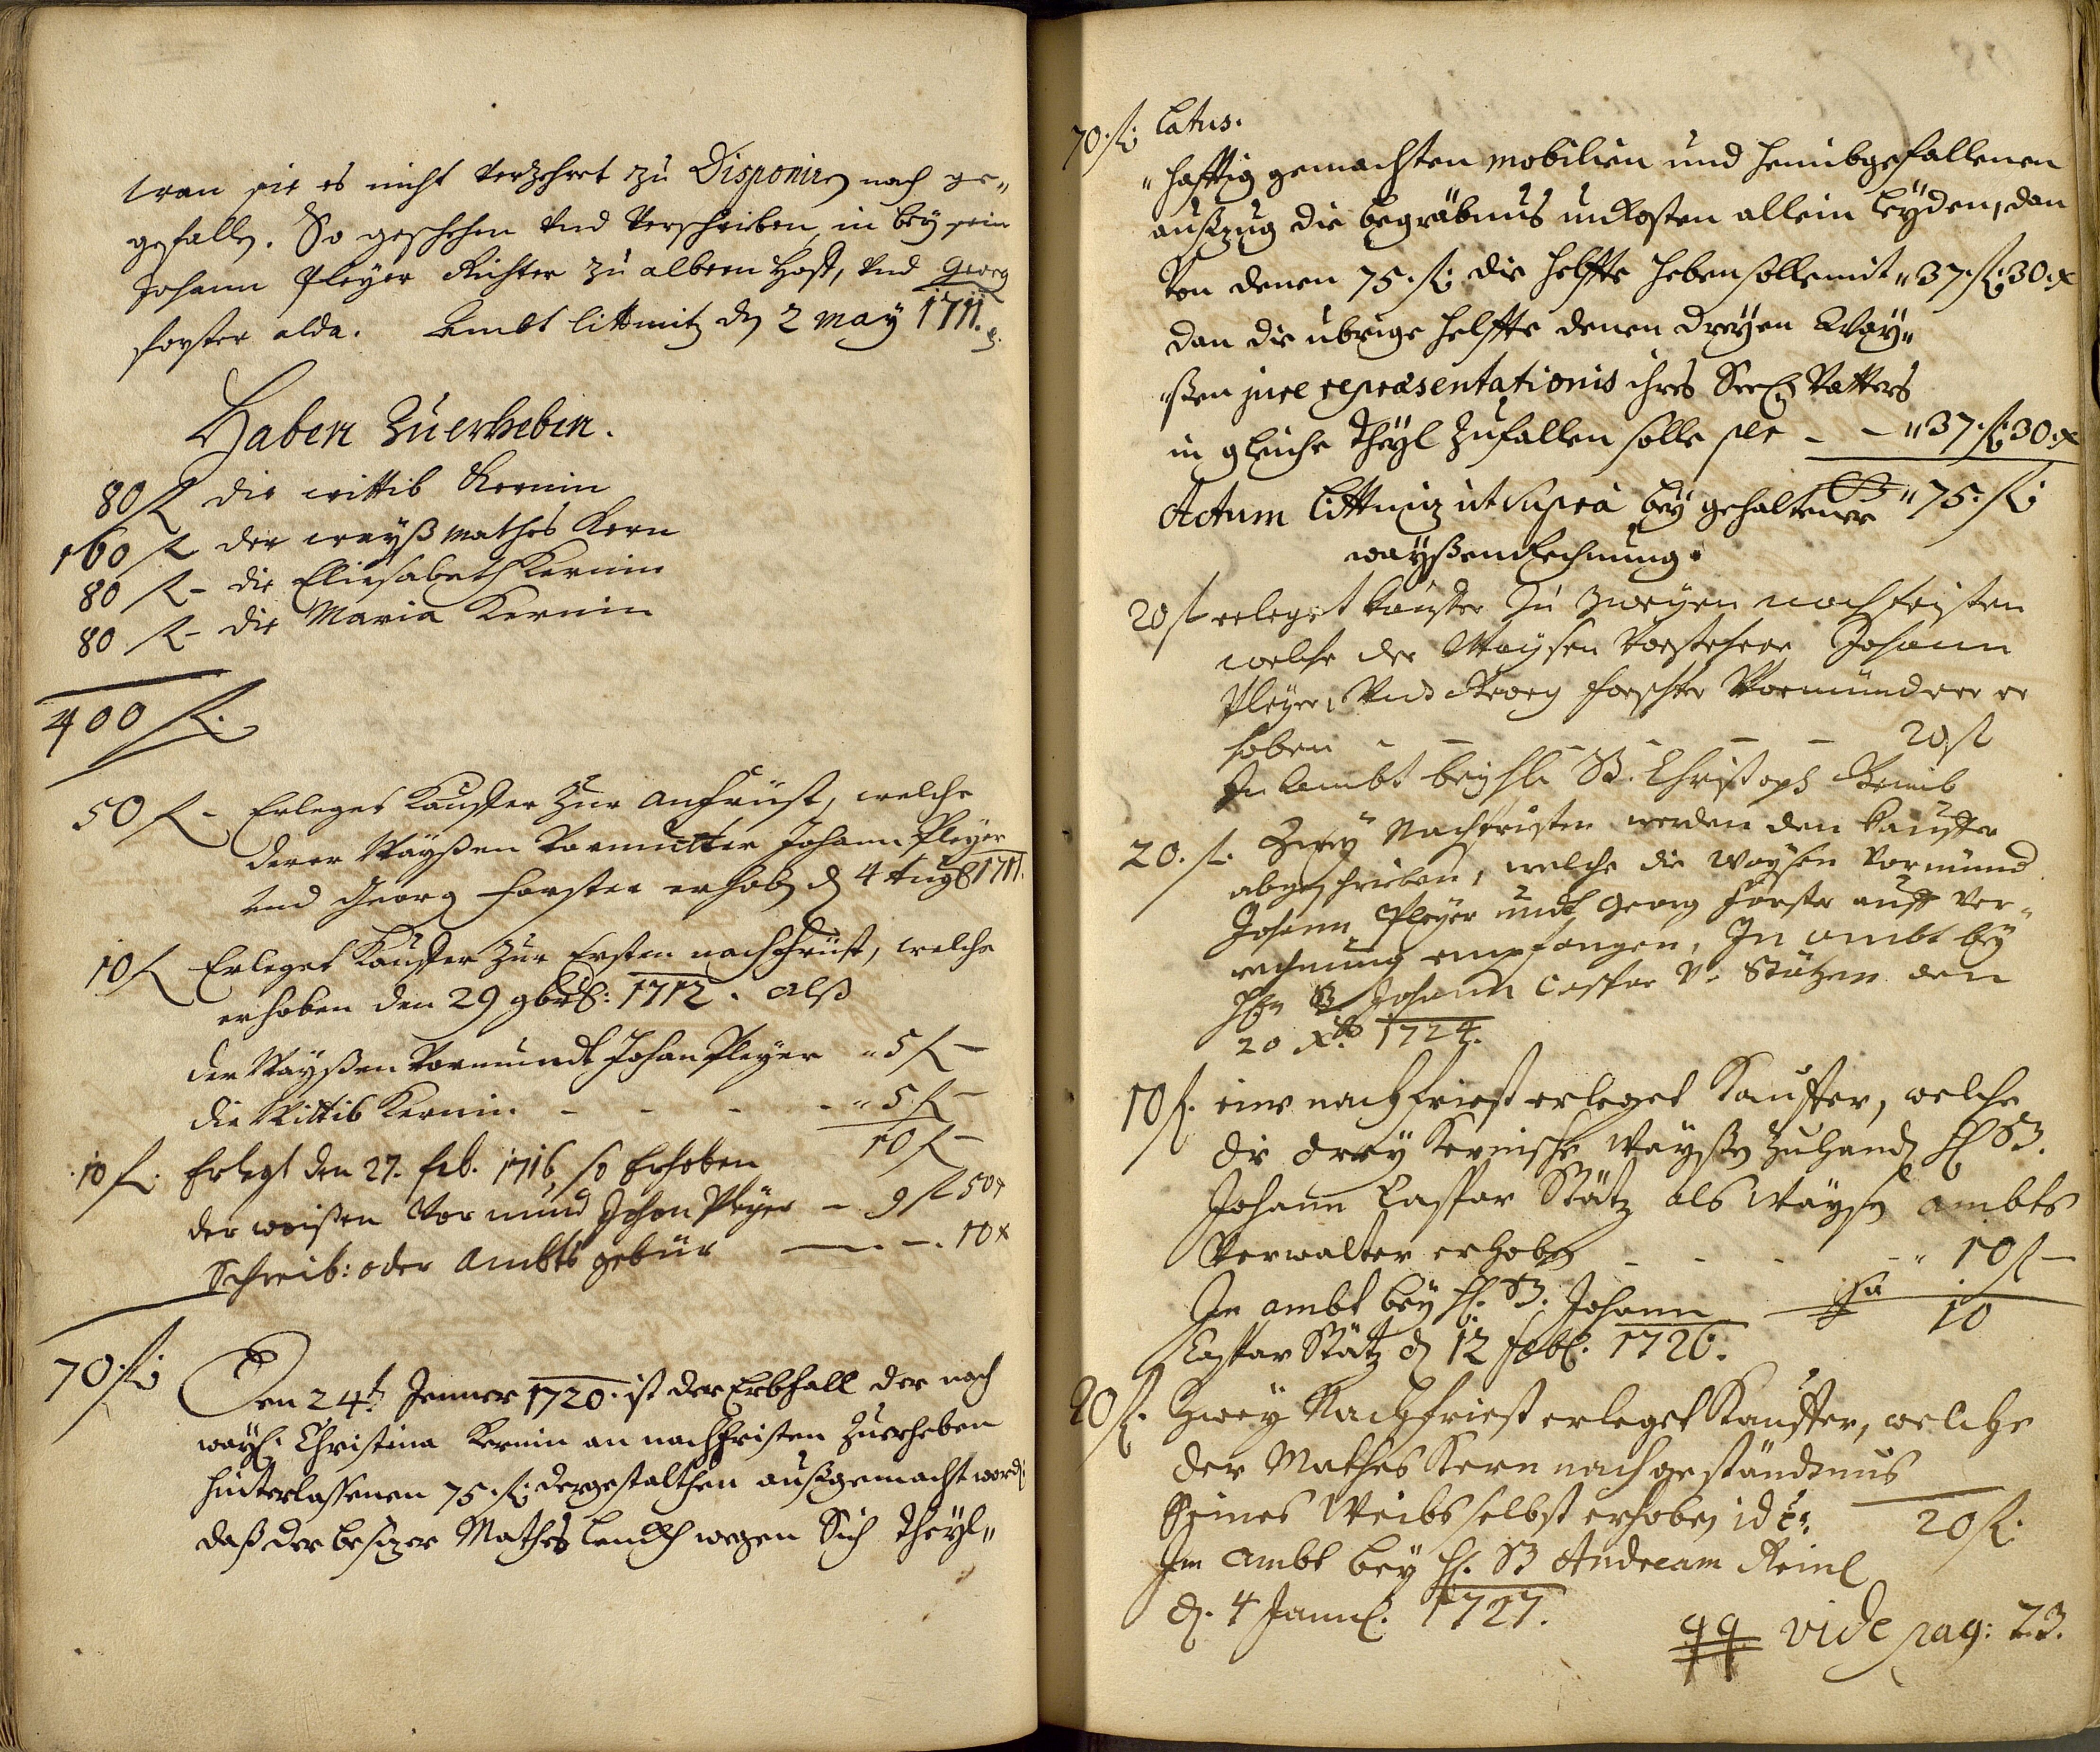 wan sie es nicht verzehret zu Disponiren nach ge„
gefallen. So geschehen vnd verschrieben, in bey sein
Johann Pleÿer Richter zu albern Hoff, vnd Georg
forster alda. Ambt littmitz den 2 maÿ 1711.
Haben Zuerheben.
80 fl die wittib Kernin
160 fl der waÿß mathes Kern
80 fl - die Eliesabeth Kernin
80 fl - die Maria Kernin
400 fl.
50 fl - Erleget Kauffer Zur anfrüst, welche
derer Waÿßen Vormutter Johann Pleÿer
vnd Georg forster erhob d 4 Aug 1711.
10 fl Erleget Kauffer Zur Ersten nachfrüst, welche
erhoben den 29 9br: 1712. alß
der Waÿßen Vormundt Johan Pleÿer „ 5 fl -
die Wittib Kernin - - - - „ 5 fl -
10 fl -
10 fl. Erlegt den 27. feb. 1716, so Erhoben
der weißen Vormund Johan Pleÿer - 9 fl 50 x
Schreib: oder Ambts gebür - - 10 x
70 fl: Den 24t. Jenner 1720. ist der Erbfall der nach
waÿl. Christina Kernin an nachfristen Zuerheben
hinterlassenen 75. fl: dergestalthen außgemacht word
daß der besizer Mathes wegen Sich theÿl„
70. fl: Latus.
„hafftig gemachten mobilien und heimbgefallenen
außzug die begräbnus unkosten allein leÿden, dan
Von denen 75. fl: die helffte heben solle mit „ 37. fl: 30. x
dan die übrige helffte denen dreÿen Waÿ„
„ßen jure repræsentationis ihres Seel Vatters
in gleiche theÿl Zufallen solle - - „ 37. fl: 30. x
Actum Littmiz ut Supra beÿ gehaltener „ 75. fl:
waÿßen Rechnung.
20 fl erleget Kauffer Zu Zweÿen nachfristen
welche der Waÿsen Vorstehere Johann
Pleÿer, Vnd Georg forster Vormündere er
hoben - - - - - 20 fl
In Ambt beÿ hl. B. Christoph
20. fl. Zweÿ Nachfristen werden den Kauffer
abgeschrieben, welche die Waÿsen Vormünd
Johann Pleÿer undt Georg forster auff ver„
rechnung empfangen, In ambt beÿ
B Johann Caspar V. Stätzen den
20 Xb. 1724.
10 fl. eine nachfrist erleget Kauffer, welche
die dreÿ Kernische Waÿßen Zuhand H B.
Johann Caspar Stätz als Waÿsen ambts
Verwalter erhoben - - - „ 10 fl -
In ambt beÿ H. B. Johann Sa 10
Caspar Stätz d 12 feb. 1726.
20 fl. Zweÿ Nachfrist erleget Kauffer, welche
der Mathes Kern nach geständnus
Seines Weibs selbst erhoben id est. 20 fl.
Im ambt beÿ H. B Andream Reinl
d. 4 Jann. 1727.
qq vide pag: 23.